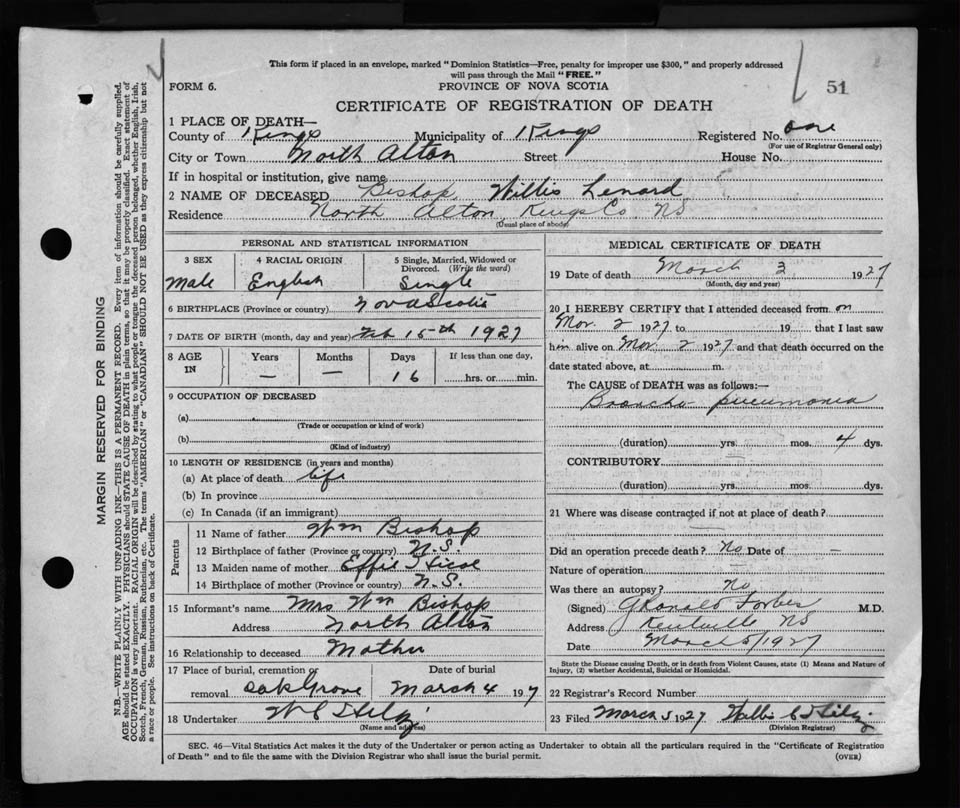 This form if placed in an envelope, marked "Dominion Statistics—Free, penalty for improper use $300," and properly addressed
will pass through the Mail "FREE."
FORM 6.
PROVINCE OF NOVA SCOTIA
51
CERTIFICATE OF REGISTRATION OF DEATH
1 PLACE OF DEATH—
County of Kings Municipality of Kings Registered No. one
(For use of Registrar General only)
City or Town North Alton Street House No.
If in hospital or institution, give name
2 NAME OF DECEASED Bishop, Willis Lenard
Residence North Alton Kings Co. NS
(Usual place of abode)
PERSONAL AND STATISTICAL INFORMATION
3 SEX 4 RACIAL ORIGIN 5 Single, Married, Widowed or
Divorced. (Write the word)
Male English Single
6 BIRTHPLACE (Province or country) Nova Scotia
7 DATE OF BIRTH (month, day and year) Feb 15th 1927
8 AGE IN Years Months Days If less than one day,
— — 16 hrs. or min.
9 OCCUPATION OF DECEASED
(a)
(Trade or occupation or kind of work)
(b)
(Kind of industry)
10 LENGTH OF RESIDENCE (in years and months)
(a) At place of death life
(b) In province
(c) In Canada (if an immigrant)
Parents
11 Name of father Wm Bishop
12 Birthplace of father (Province or country) N.S.
13 Maiden name of mother Effie
14 Birthplace of mother (Province or country) N.S.
15 Informant's name Mrs Wm Bishop
Address North Alton
16 Relationship to deceased Mother
17 Place of burial, cremation or Date of burial
removal Oak Grove March 4 197
18 Undertaker
(Name and address)
MEDICAL CERTIFICATE OF DEATH
19 Date of death March 3 1927
(Month, day and year)
20 I HEREBY CERTIFY that I attended deceased from on
Mar. 2 1927 to 19 that I last saw
him alive on Mar 2 1927 and that death occurred on the
date stated above, at m.
The CAUSE of DEATH was as follows:—
Broncho pneumonia
(duration) yrs. mos. 4 dys.
CONTRIBUTORY —
(duration) yrs. mos. dys.
21 Where was disease contracted if not at place of death?
—
Did an operation precede death? No Date of —
Nature of operation
Was there an autopsy? No
(Signed) G Ronald Forbes M.D.
Address Kentville NS
Date March 5/1927
State the Disease causing Death, or in death from Violent Causes, state (1) Means and Nature of
Injury, (2) whether Accidental, Suicidal or Homicidal.
22 Registrar's Record Number
23 Filed March 5 1927
(Division Registrar)
SEC. 46—Vital Statistics Act makes it the duty of the Undertaker or person acting as Undertaker to obtain all the particulars required in the "Certificate of Registration
of Death" and to file the same with the Division Registrar who shall issue the burial permit. (OVER)
MARGIN RESERVED FOR BINDING
N.B.—WRITE PLAINLY WITH UNFADING INK—THIS IS A PERMANENT RECORD. Every item of information should be carefully supplied.
AGE should be stated EXACTLY. PHYSICIANS should STATE CAUSE OF DEATH in plain terms, so that it may be properly classified. Exact statement of
OCCUPATION is very important. RACIAL ORIGIN will be described by stating to what people or tongue the deceased person belonged, whether English, Irish,
Scotch, French, German, Russian, Ruthenian, etc. The terms "AMERICAN" or "CANADIAN" SHOULD NOT BE USED as they express citizenship but not
a race or people. See instructions on back of Certificate.